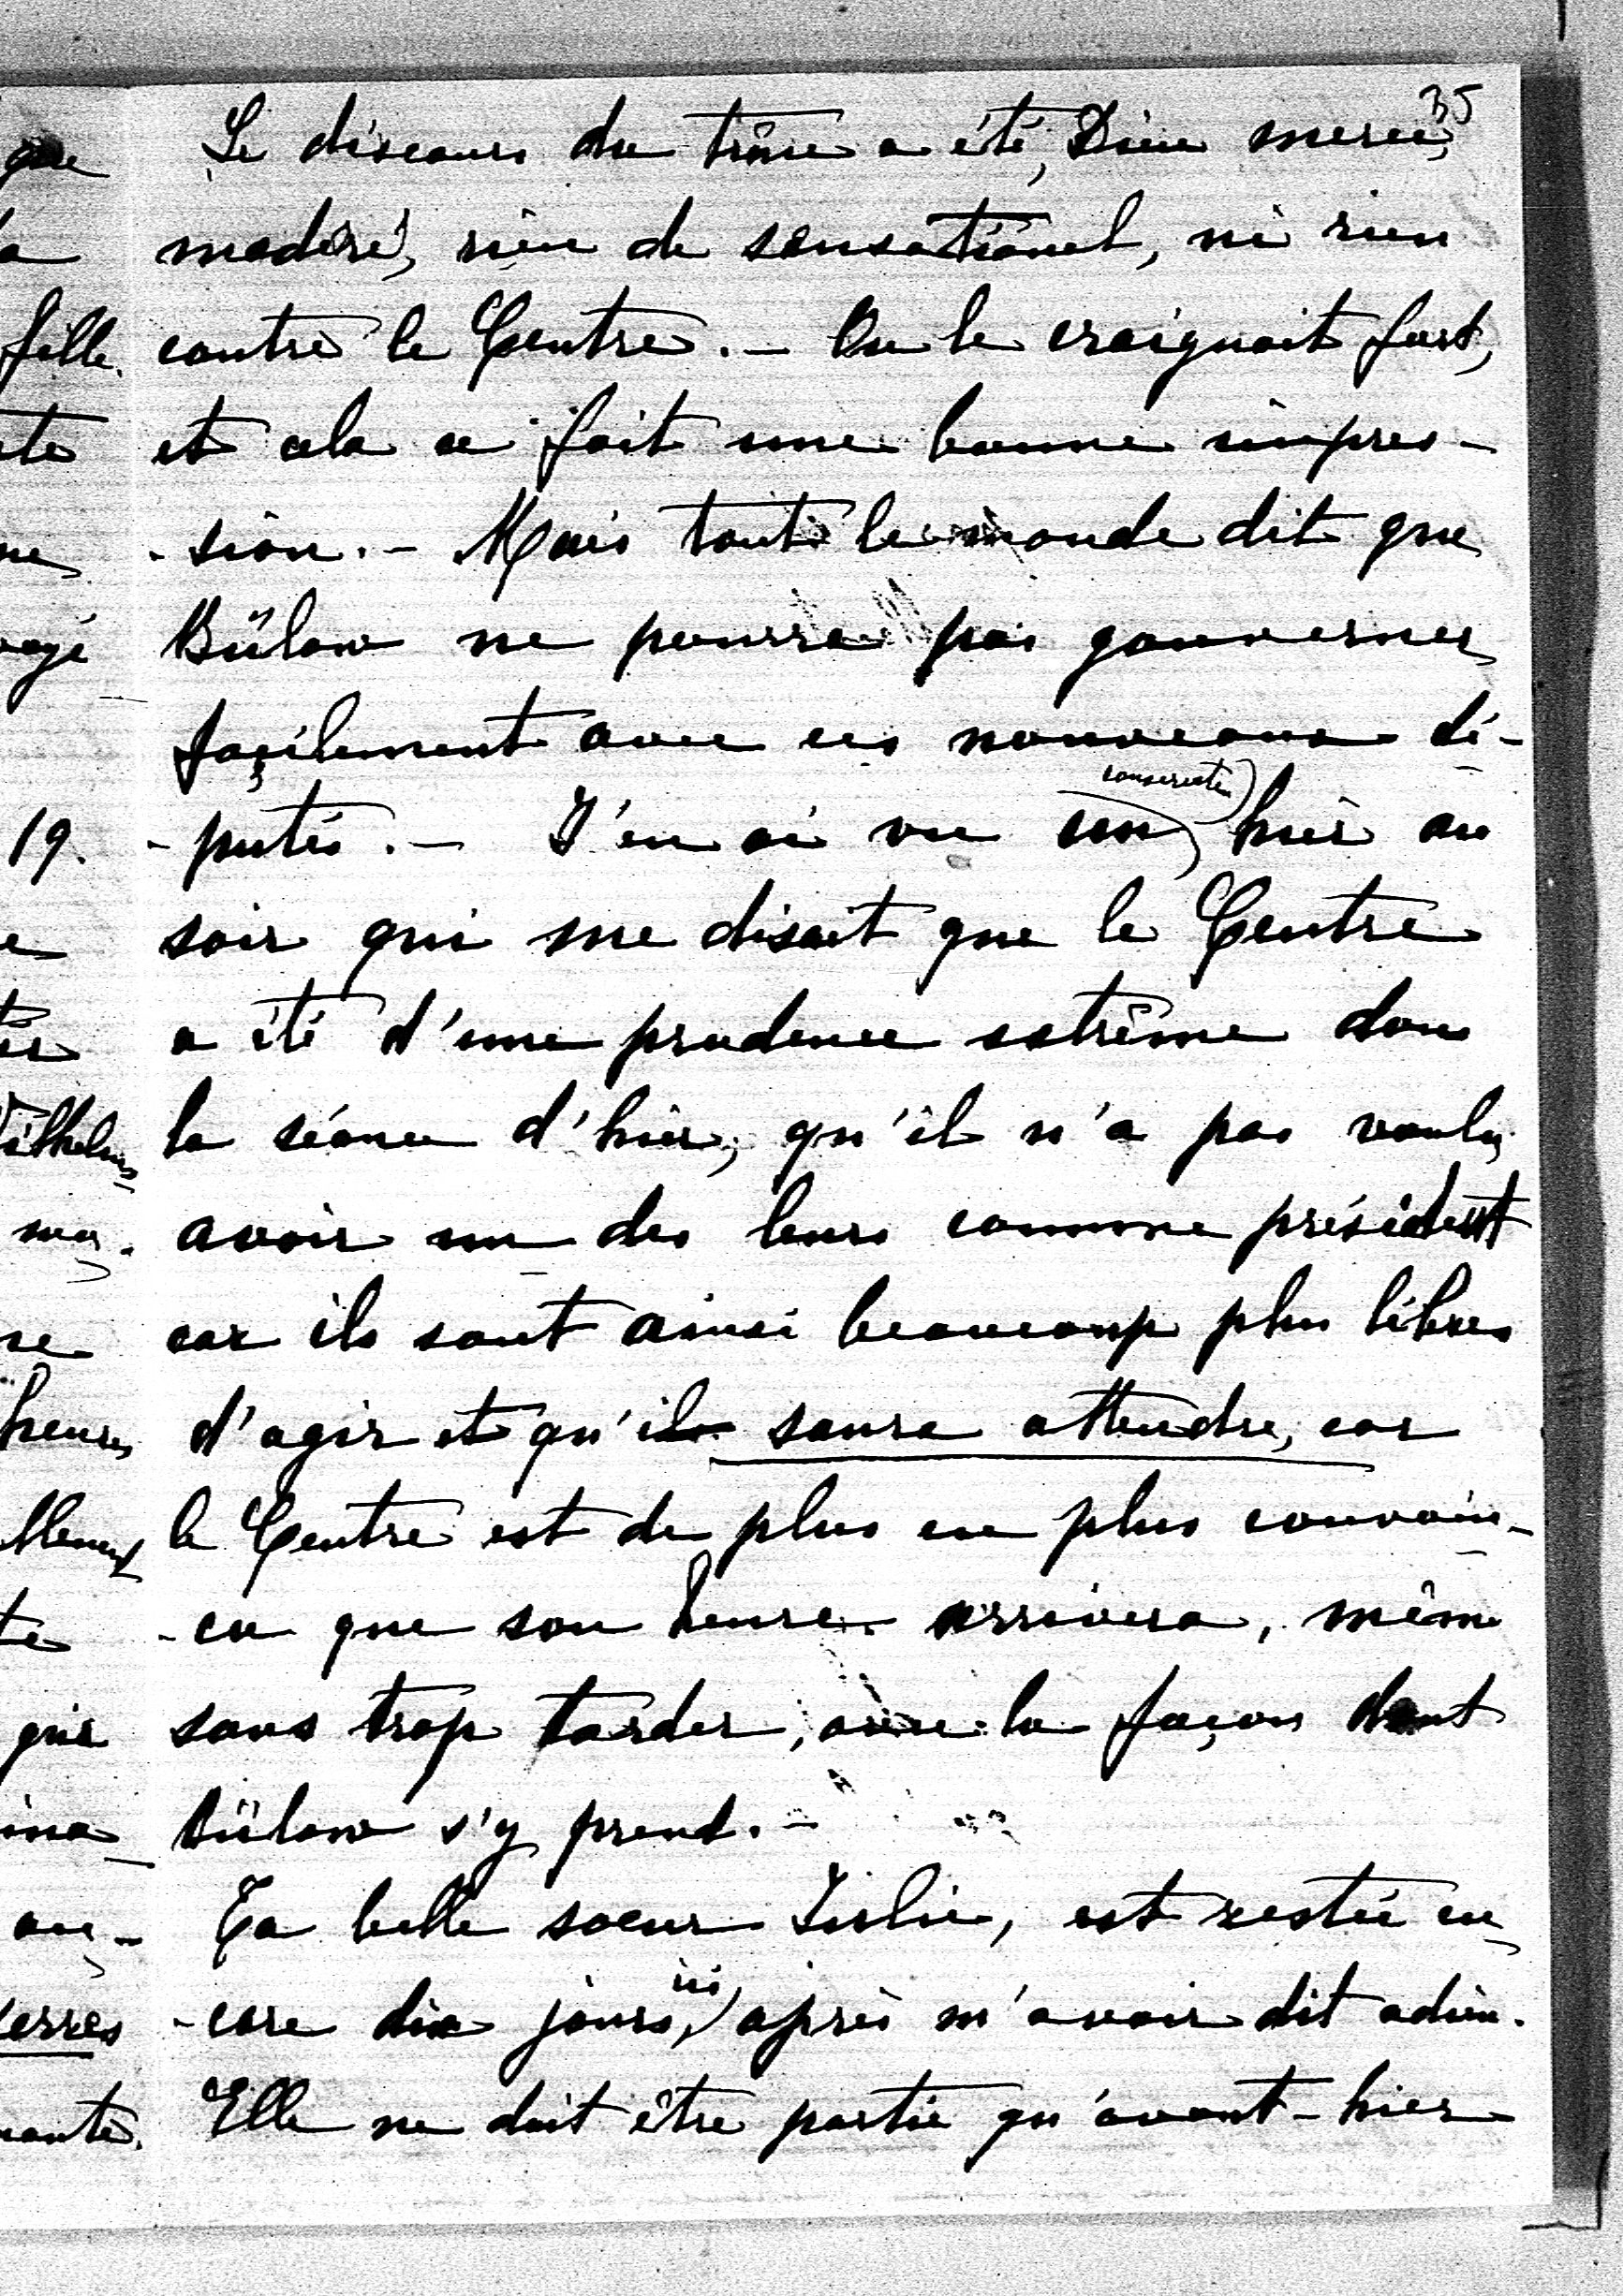 35
Le discours du trône a été, Dieu merci,
modéré, rien de sensationel, ni rien
contre le Centre. — On le craignait fort,
et cela a fait une bonne impres-
-sion. — Mais tout le monde dit que
Bülow ne pourra pas gouverner
façilement avec ces nouveaux dé-
-putés. — J'en ai vu un (conservateur) hier au
soir qui me disait que le Centre
a été d'une prudence extrême dans
la séance d'hier, qu'il n'a pas voulu
avoir un des leurs comme président
car ils sont ainsi beaucoup plus libres
d'agir et qu'il saura attendre, car
le Centre est de plus en plus convain-
-cu que son heure arrivera, même
sans trop tarder, avec la façon dont
Bülow s'y prend. —
Ta belle soeur est restée en
-core dix jours ici, après m'avoir dit adieu.
Elle ne doit être partie qu'avant-hier
que
la
fille.
19.
Wilhelm
heures
qui
erres